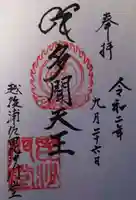 奉拝
令和二年
九月二十七日
多聞天王
越後浦佐毘沙門堂